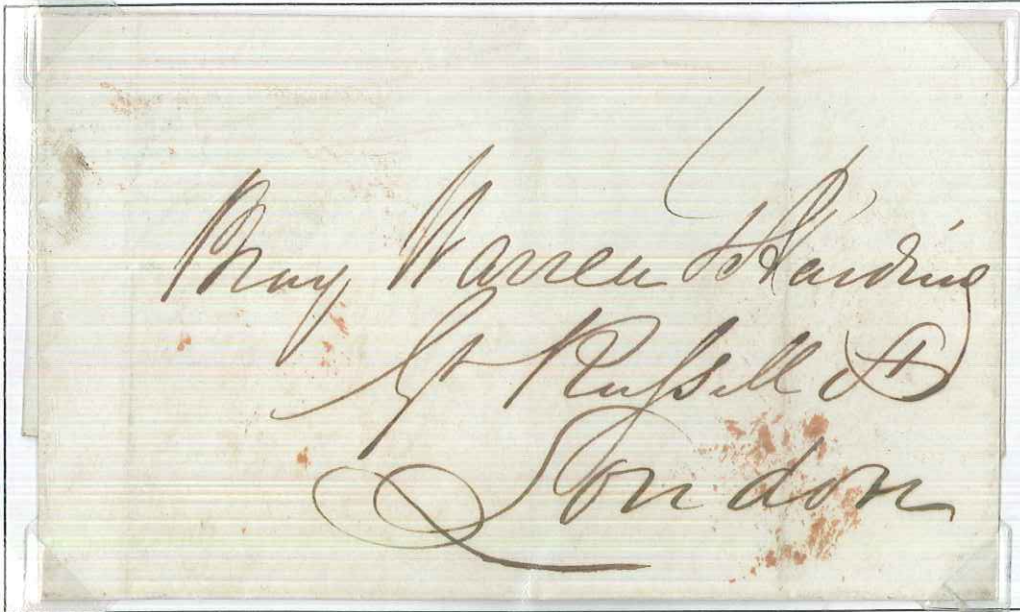 Bray Warren & Harding
Gt Russell St
London